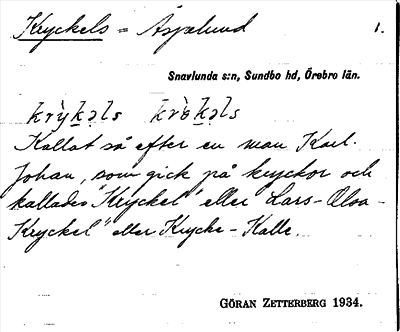 Kryckels = Äspelund 1.
Snavlunda s:n, Sundbo hd, Örebro län.
krỳk̠əls krɵ̀k̠əls
Kallat så efter en man Karl-
Johan, som gick på kryckor och
kallades "Kryckel" eller "Lars-Olsa-
Kryckel" eller Krycke-Kalle.
GÖRAN ZETTERBERG 1934.